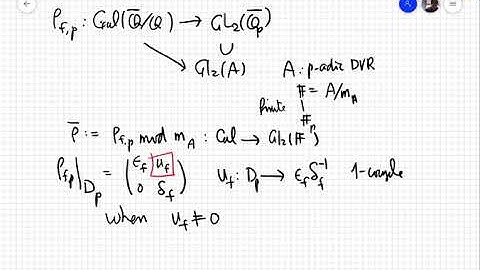 ρ_{f,p} : Gal(Q̄/Q) → GL₂(Q̄_p)
∪
Gl₂(A) A : p-adic DVR
F = A/m_A
finite |
F_p
ρ̄ := ρ_{f,p} mod m_A : Gal → Gl₂(F)
ρ_{f,p}|_{D_p} = (ε_f u_f ; 0 δ_f) u_f : D_p → ε_f δ_f^{-1} 1-cocycle
When u_f ≠ 0